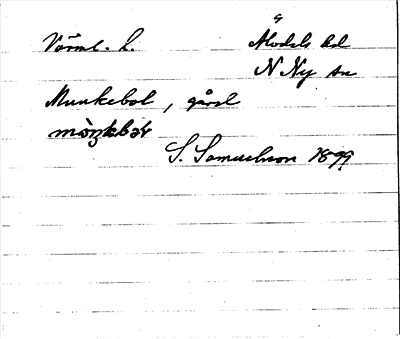 Värml. L. Älvdals hd
N Ny sn
Munkebol, gård
mòŋkbər
S. Samuelsson 1899